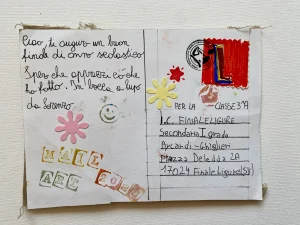 Ciao, ti auguro un buon
fine di anno scolastico
Spero che apprezzi ciò che
ho fatto. In bocca al lupo
da
L
PER LA CLASSE 3ªA
I.C. FINALE LIGURE
Secondaria I grado
Piazza Deledda 2A
17024 Finale Ligure (SV)
MAIL
ART